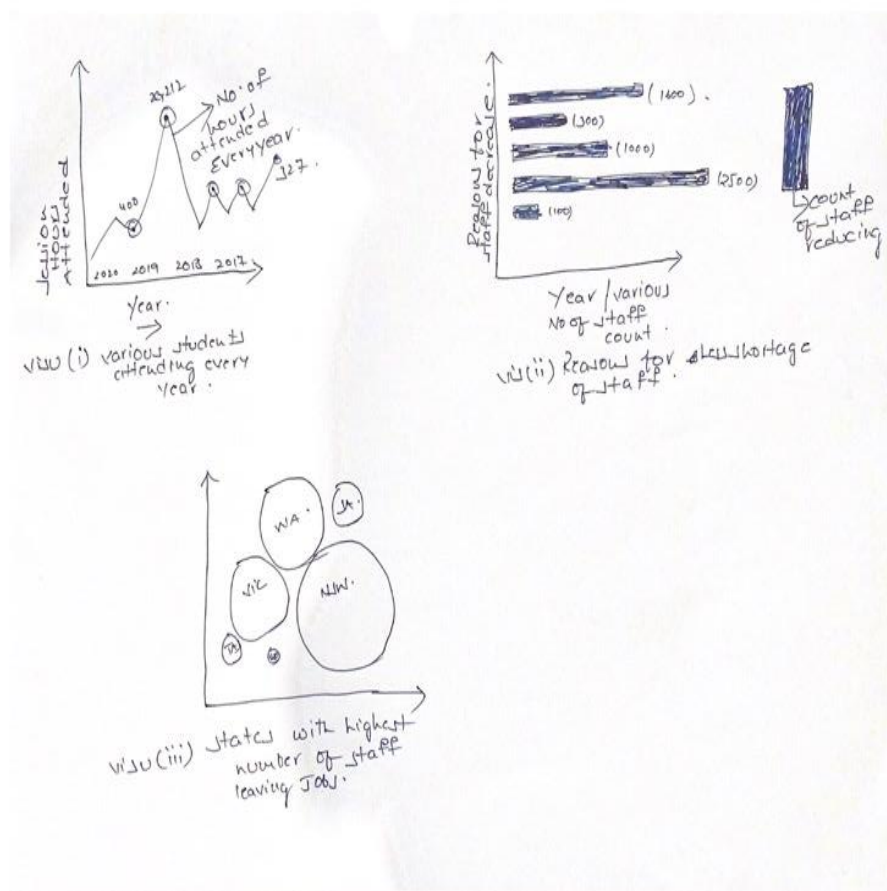 No. of
hours
attended
Every year.
400
327.
Session
Hours
Attended
2020 2019 2018 2017
Year.
visu (i) various students
attending every
year.
Reasons for
staff decrease.
(300)
(1000)
(2500)
(100)
count
of staff
reducing
Year / various
No of staff
count.
vis (ii) Reasons for shortage
of staff.
WA.
SA.
VIC
NSW.
visu (iii) states with highest
number of staff
leaving Jobs.